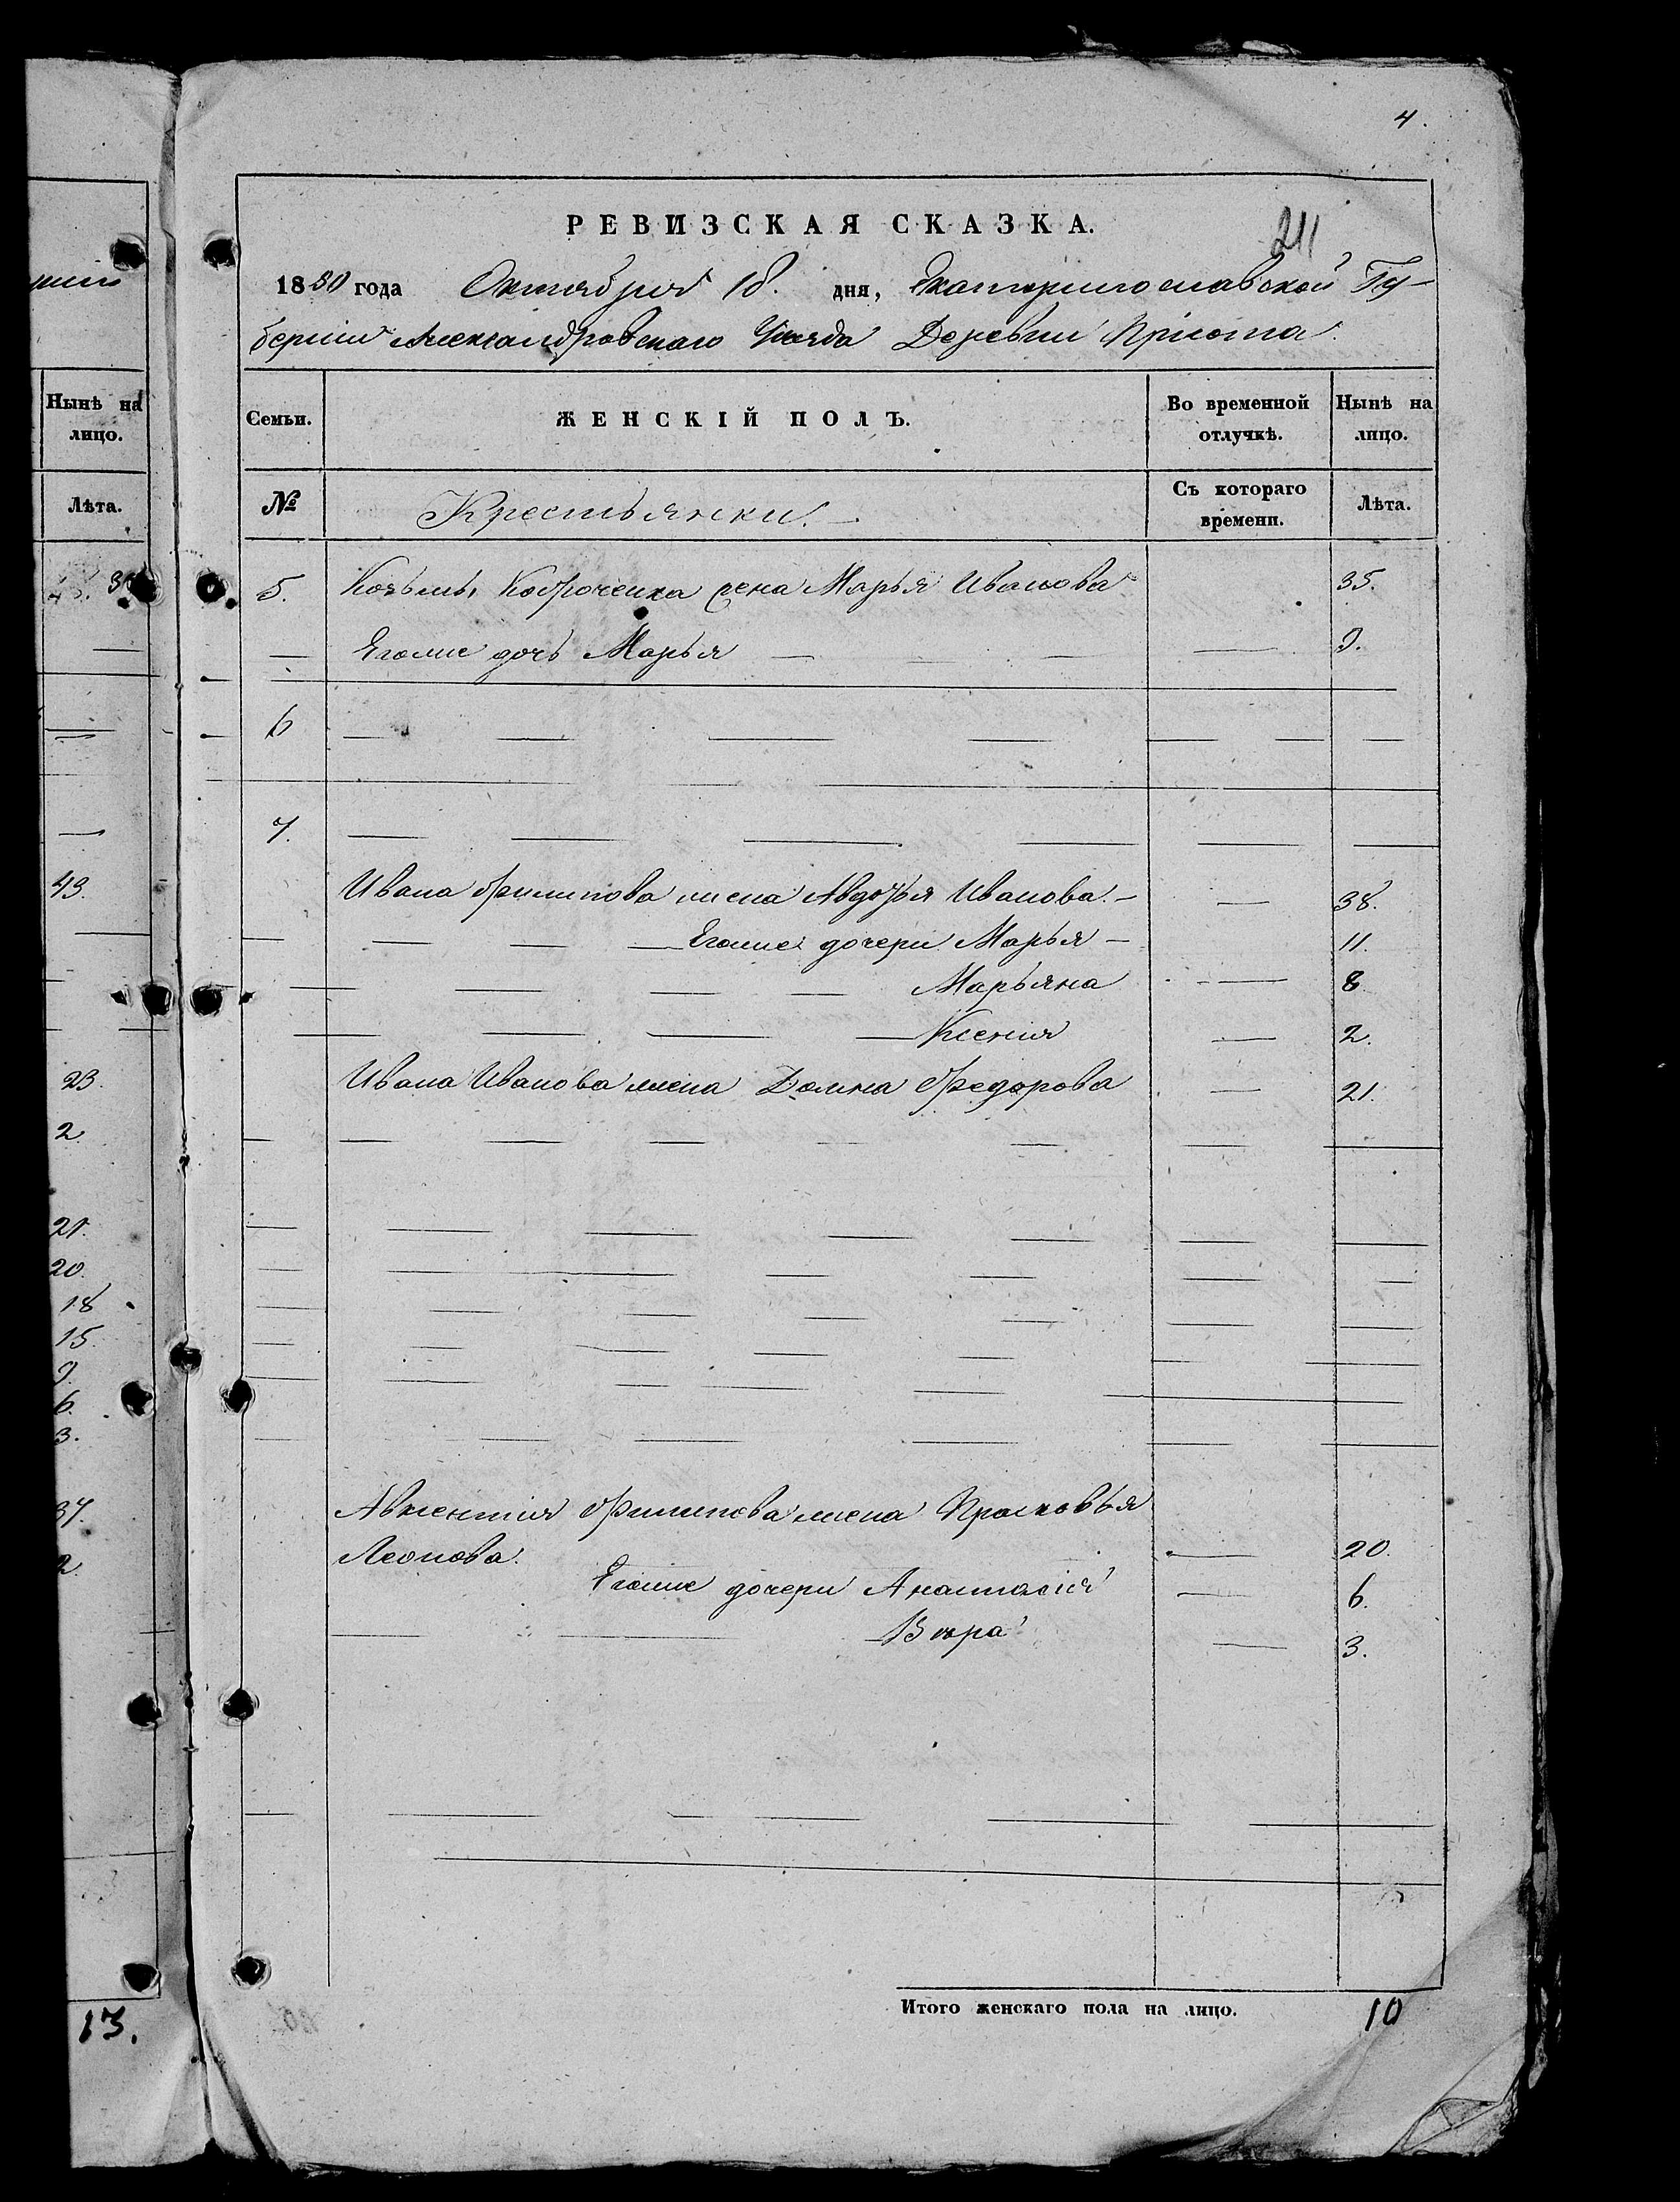 4.
РЕВИЗСКАЯ СКАЗКА.
211
1850 года Октября 18. дня, Екатеринославской Гу-
берніи Александровскаго Уѣзда Деревни Пріюта.
Семьи.
ЖЕНСКІЙ ПОЛЪ.
Во временной отлучкѣ.
Нынѣ на лицо.
№
Крестьянки.
Съ котораго времени.
Лѣта.
5. Козьмы жена Марья Иванова 35.
Егоже дочь Марья 9.
6
7.
Ивана Филипова жена Авдотья Иванова. 38.
Егоже дочери Марья 11.
Марьяна 8
Ксенія 2.
Ивана Иванова жена Домна Федорова 21.
Авксентія Филипова жена Прасковья
Леонова. 20.
Егоже дочери Анастасія 6.
Вѣра 3.
Итого женскаго пола на лицо. 10
Нынѣ на лицо.
Лѣта.
43.
23.
2.
21.
20.
18
15.
9.
6.
3.
37.
2.
13.